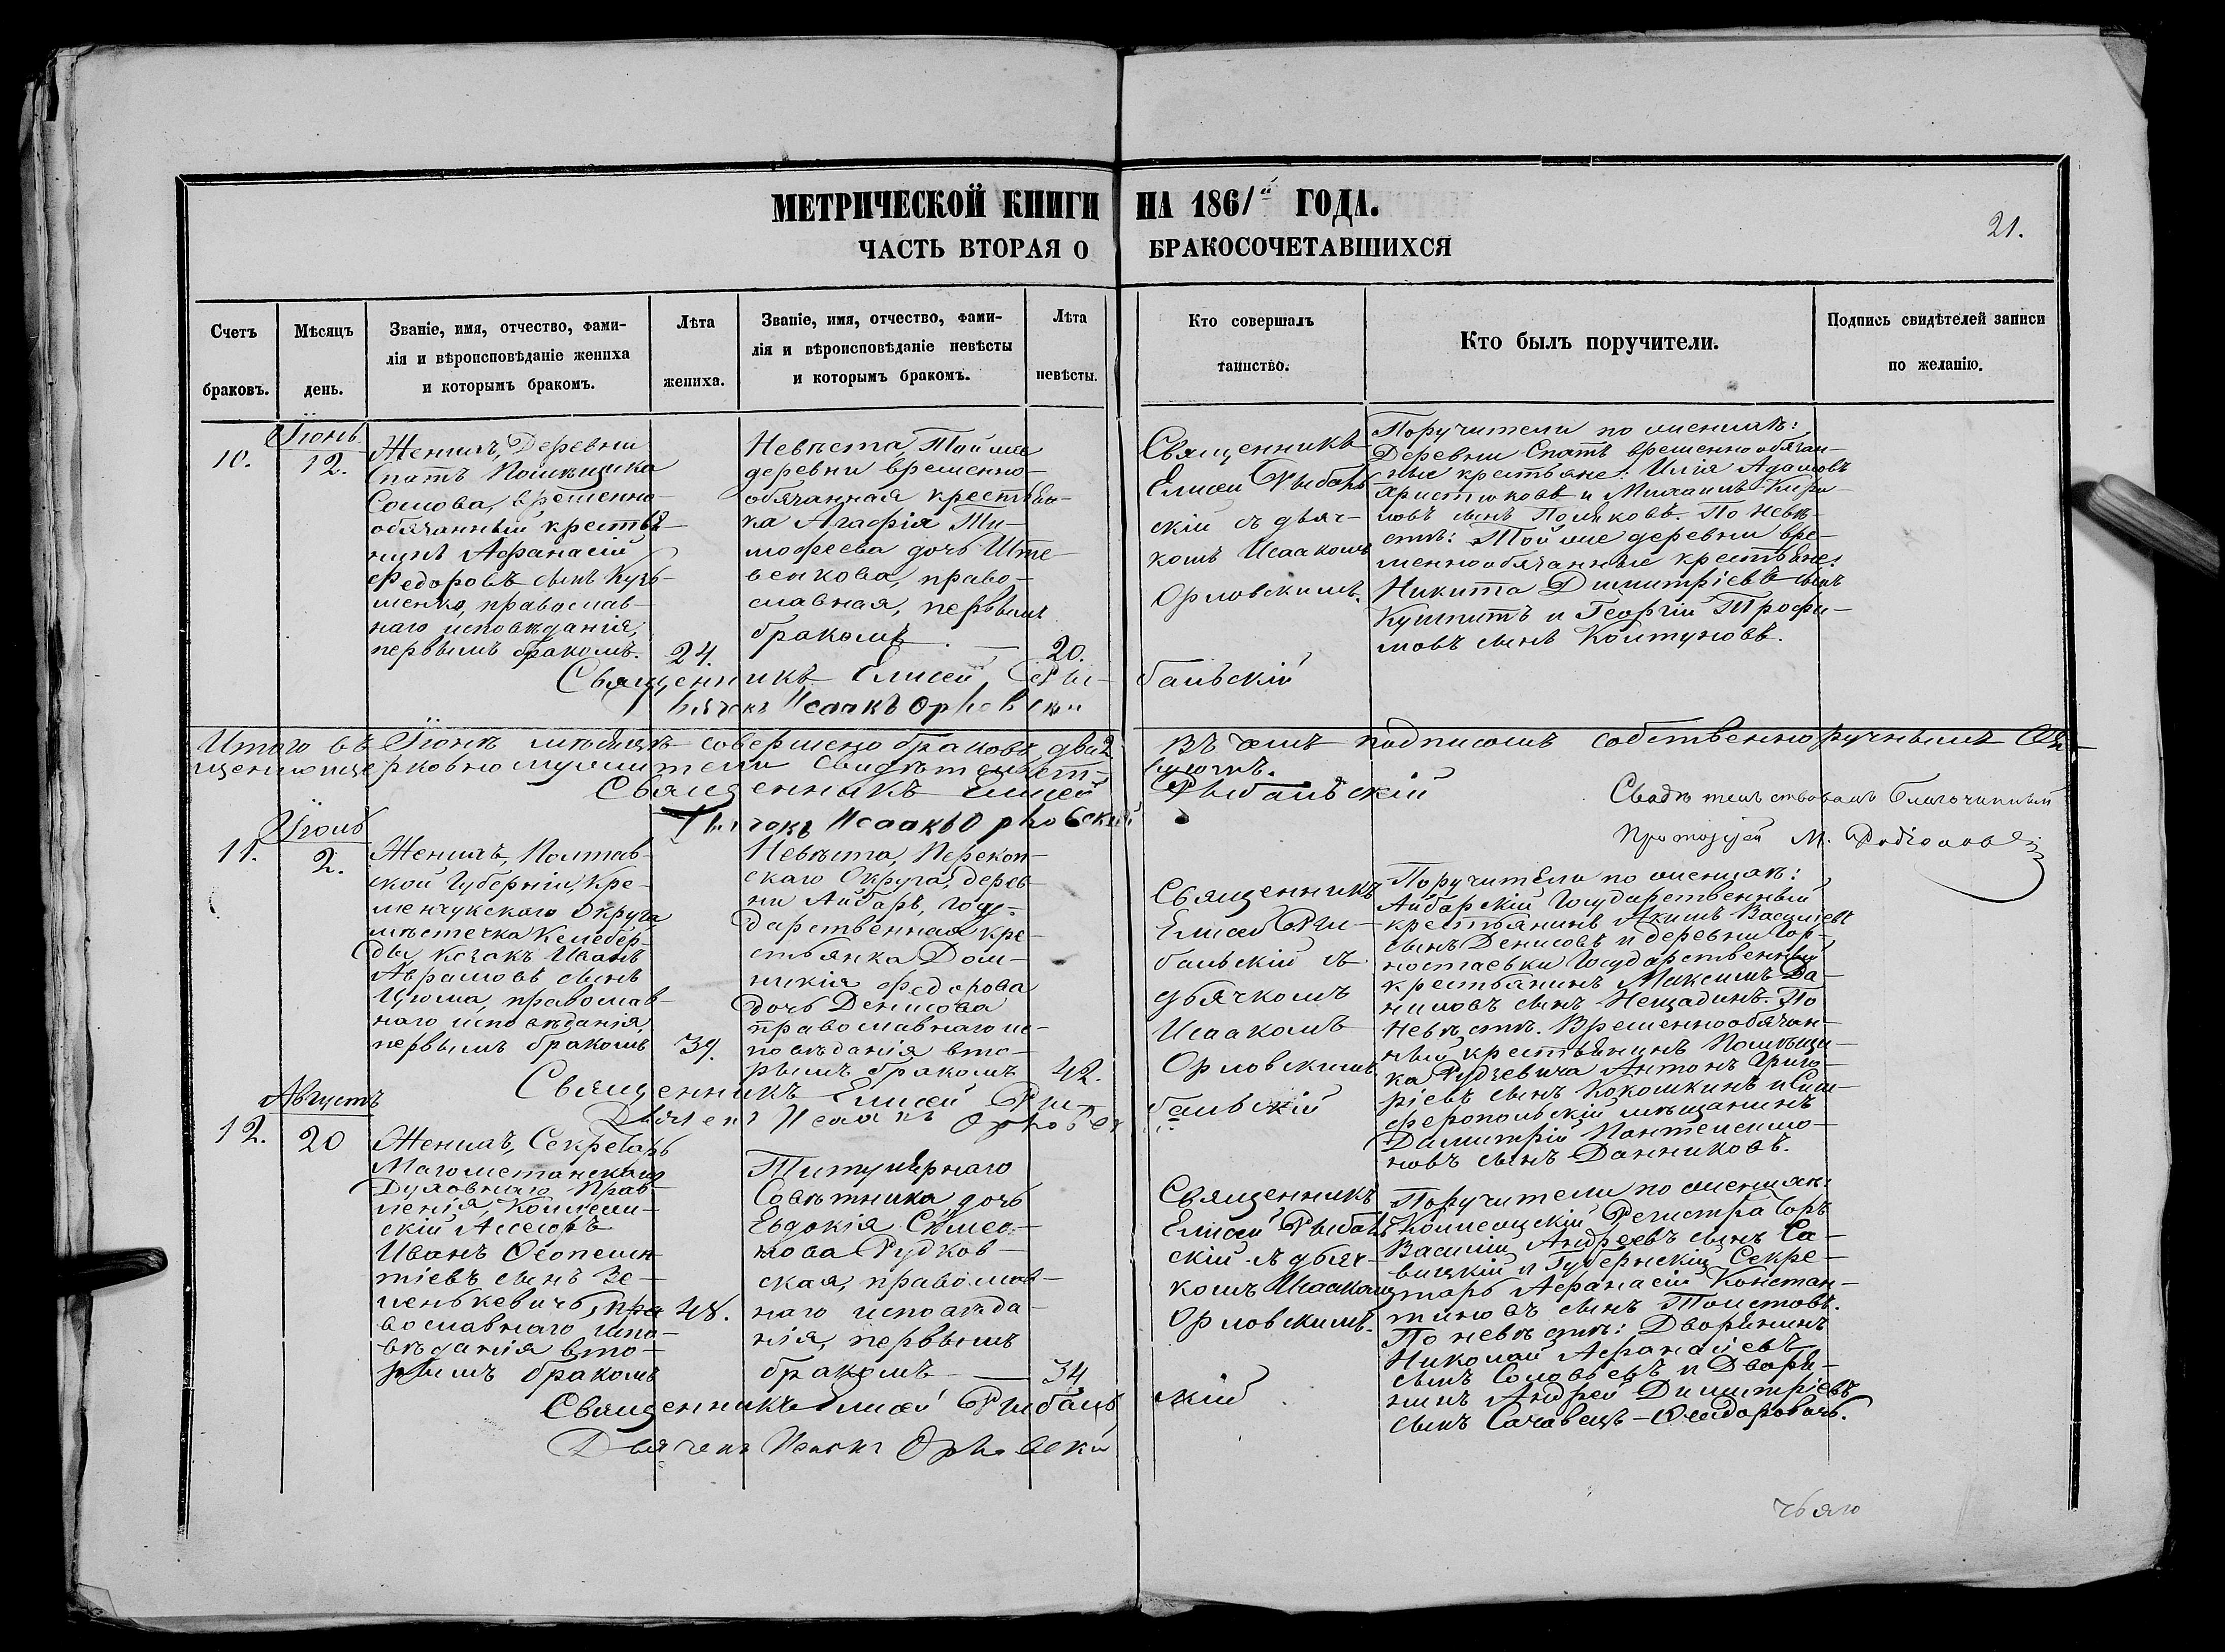 МЕТРИЧЕСКОЙ КНИГИ НА 1861й ГОДА.
21.
ЧАСТЬ ВТОРАЯ О БРАКОСОЧЕТАВШИХСЯ
Счетъ браковъ.
Мѣсяцъ день.
Званіе, имя, отчество, фами-
лія и вѣроисповѣданіе жениха
и которымъ бракомъ.
Лѣта жениха.
Званіе, имя, отчество, фами-
лія и вѣроисповѣданіе невѣсты
и которымъ бракомъ.
Лѣта невѣсты.
Кто совершалъ
таинство.
Кто былъ поручители.
Подпись свидѣтелей записи
по желанію.
10.
Іюнь
12.
Женихъ, Деревни
Спатъ Помѣщика
Сомова, временно-
обязанный крестья-
нинъ Афанасій
Федоровъ сынъ Кузь-
менко, православ-
наго исповѣданія,
первымъ бракомъ.
24.
Невѣста, Той же
деревни временно-
обязанная крестьян-
ка Агафія Ти-
мофеева дочь Ште-
венкова, право-
славная, первымъ
бракомъ
20.
Священникъ
Елисей Рыбаль-
скій съ дьяч-
комъ Исаакомъ
Орловскимъ.
Поручители по женихѣ:
Деревни Спатъ временнообязан-
ные крестьяне: Илія Адамовъ
Христюковъ и Михаилъ Кири-
ловъ сынъ Поляковъ. По невѣ-
стѣ: Той же деревни вре-
меннообязанные крестьяне:
Никита Димитріевъ сынъ
и Георгій Трофи-
мовъ сынъ Колтуновъ.
Священникъ Елисей Рыбальскій
Дьячокъ Исаакъ Орловскій
Итого въ Іюнѣ мѣсяцѣ совершено браковъ два 2 въ чемъ подписомъ собственноручнымъ Свя-
щенноцерковнослужители свидѣтельствуютъ.
Священникъ Елисей Рыбальскій
Дьячокъ Исаакъ Орловскій
Свидѣтельствовалъ Благочинный
Протоіерей М. Родіоновъ
11.
Іюль
2.
Женихъ, Полтав-
ской Губерніи, Кре-
менчукскаго Округа,
мѣстечка Келебер-
ды, козакъ Иванъ
Аврамовъ сынъ
Цюма, православ-
наго исповѣданія,
первымъ бракомъ
39.
Невѣста, Перекоп-
скаго Округа, дерев-
ни Айбаръ, Госу-
дарственная кре-
стьянка Дом-
никія Федорова
дочь Денисова
православнаго ис-
повѣданія вто-
рымъ бракомъ
42.
Священникъ
Елисей Ры-
бальскій съ
дьячкомъ
Исаакомъ
Орловскимъ
Поручители по женихѣ:
Айбарскій Государственный
крестьянинъ Акимъ Василіевъ
сынъ Денисовъ и деревни Гор-
ностаевки Государственный
крестьянинъ Максимъ Да-
ниловъ сынъ Нещадинъ. По
невѣстѣ. Временнообязан-
ный крестьянинъ Помѣщи-
ка Рудзевича Антонъ Григо-
ріевъ сынъ Кокошкинъ и Сим-
феропольскій мѣщанинъ
Димитрій Пантелеимо-
новъ сынъ Данниковъ.
Священникъ Елисей Рыбальскій
Дьячекъ Исаакъ Орловск
12.
Августъ
20
Женихъ, Секретарь
Магометанскаго
Духовнаго Прав-
ленія, Коллеж-
скій Ассесоръ
Иванъ Феопемп-
тіевъ сынъ Зе-
ленькевичъ, пра-
вославнаго испо-
вѣданія вто-
рымъ бракомъ
48.
Титулярнаго
Совѣтника дочь
Евдокія Симео-
нова Рудков-
ская, православ-
наго исповѣда-
нія, первымъ
бракомъ
34
Священникъ
Елисей Рыбаль-
скій съ дьяч-
комъ Исаакомъ
Орловскимъ.
Поручители по женихѣ:
Коллежскій Регистраторъ
Василій Андреевъ сынъ Са-
вицкій и Губернскій Секре-
тарь Афанасій Констан-
тиновъ сынъ Толстовъ.
По невѣстѣ: Дворянинъ
Николай Афанасіевъ
сынъ Соловьевъ и Дворя-
нинъ Андрей Димитріевъ
сынъ
Священникъ Елисей Рыбальскій
Дьячекъ Исаакъ Орловскій